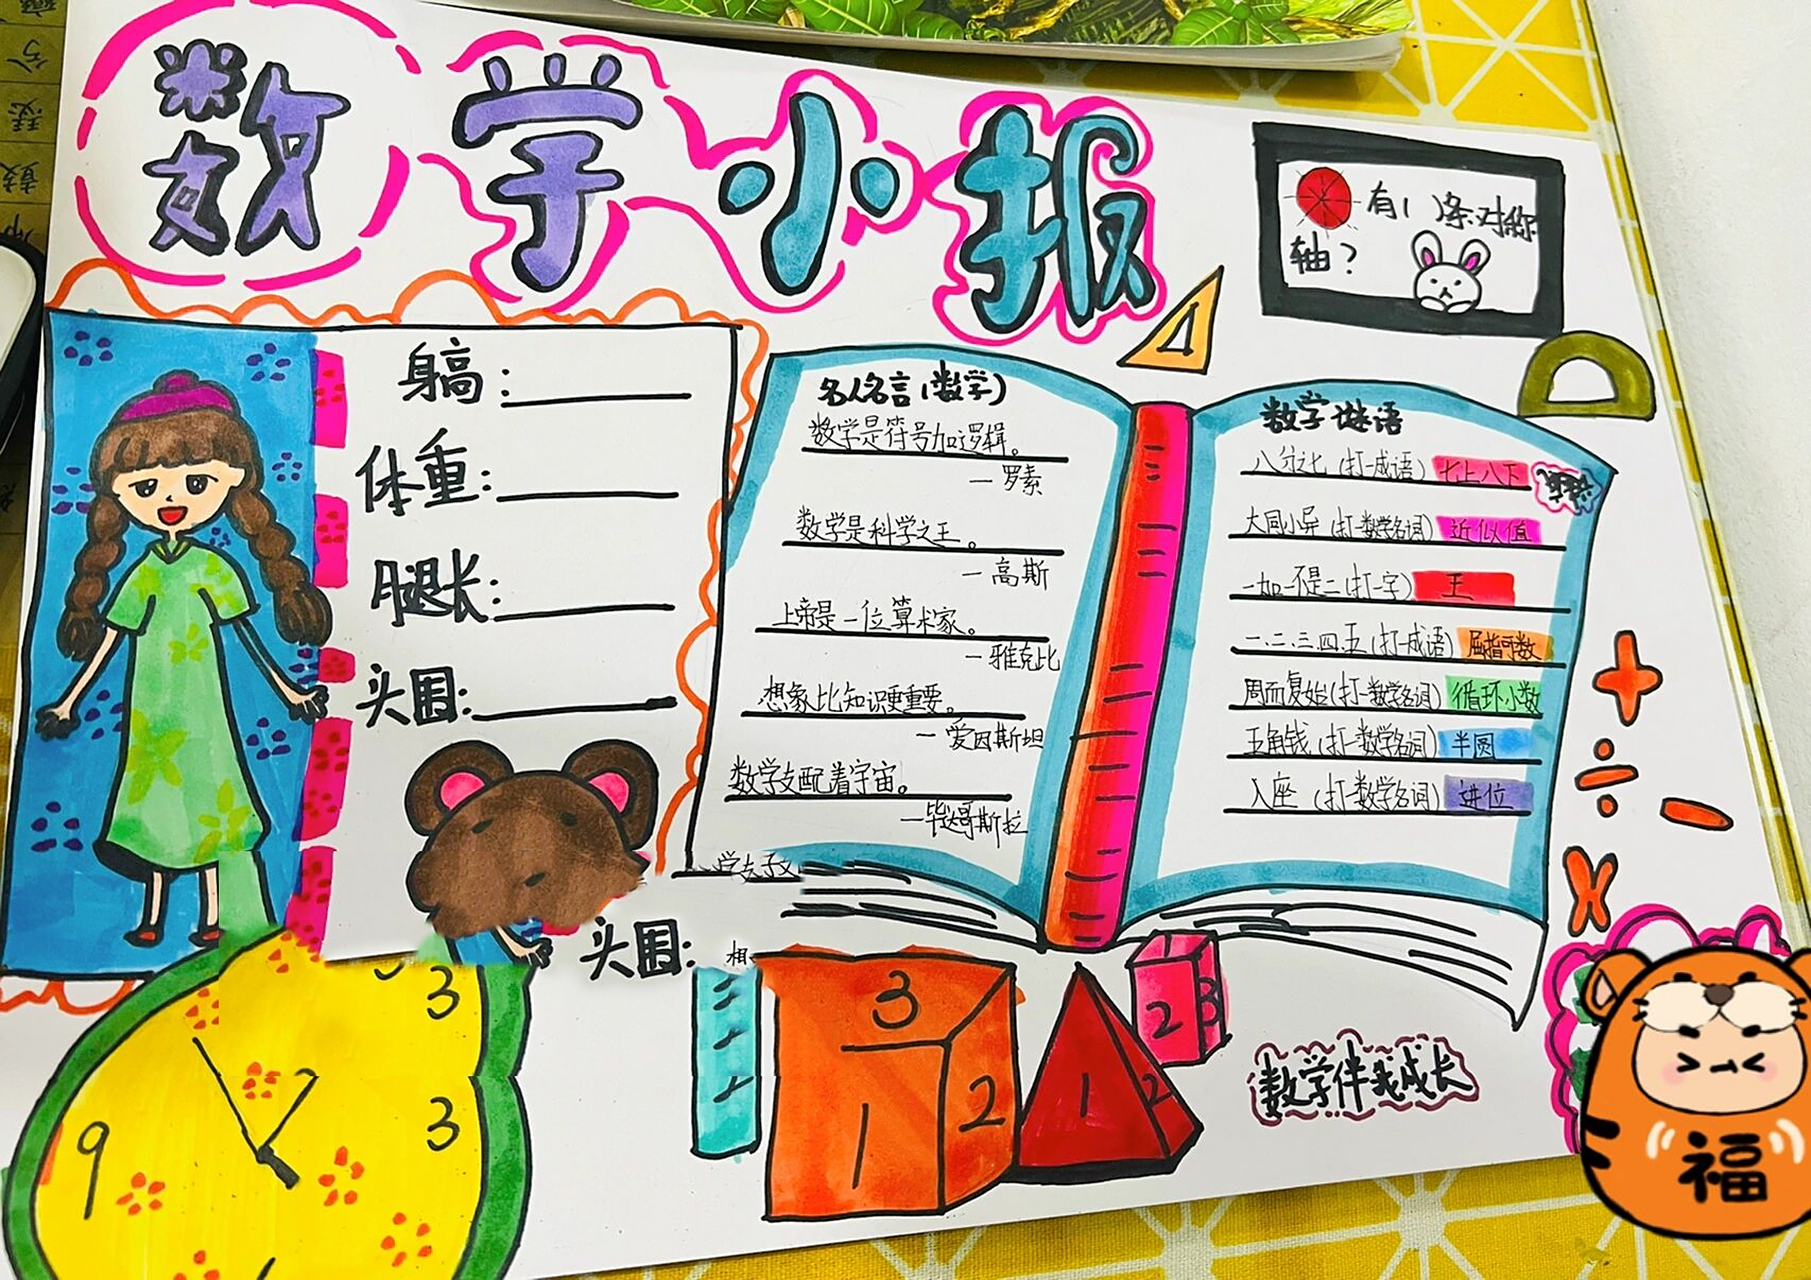 数学小报
有( )条对称
轴?
身高:
体重:
腿长:
头围:
名人名言(数学)
数学是符号加逻辑。
—罗素
数学是科学之王。
—高斯
上帝是一位算术家。
—雅克比
想象比知识更重要。
—爱因斯坦
数学支配着宇宙。
—毕达哥斯拉
数学谜语
八分之七(打一成语) 七上八下
大同小异(打一数学名词) 近似值
一加一不是二(打一字) 王
一.二.三.四.五(打一成语) 屈指可数
周而复始(打一数学名词) 循环小数
五角钱(打一数学名词) 半圆
入座(打一数学名词) 进位
+
÷ −
×
头围:
相
3
9
3
3
1
2
1
2
2
3
数学伴我成长
福